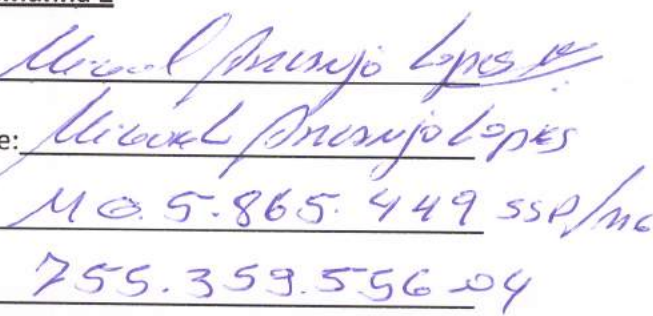 Miguel Araujo Lopes
e: Miguel Araujo Lopes
MG. 5.865.449 SSP/MG
755.359.556-04